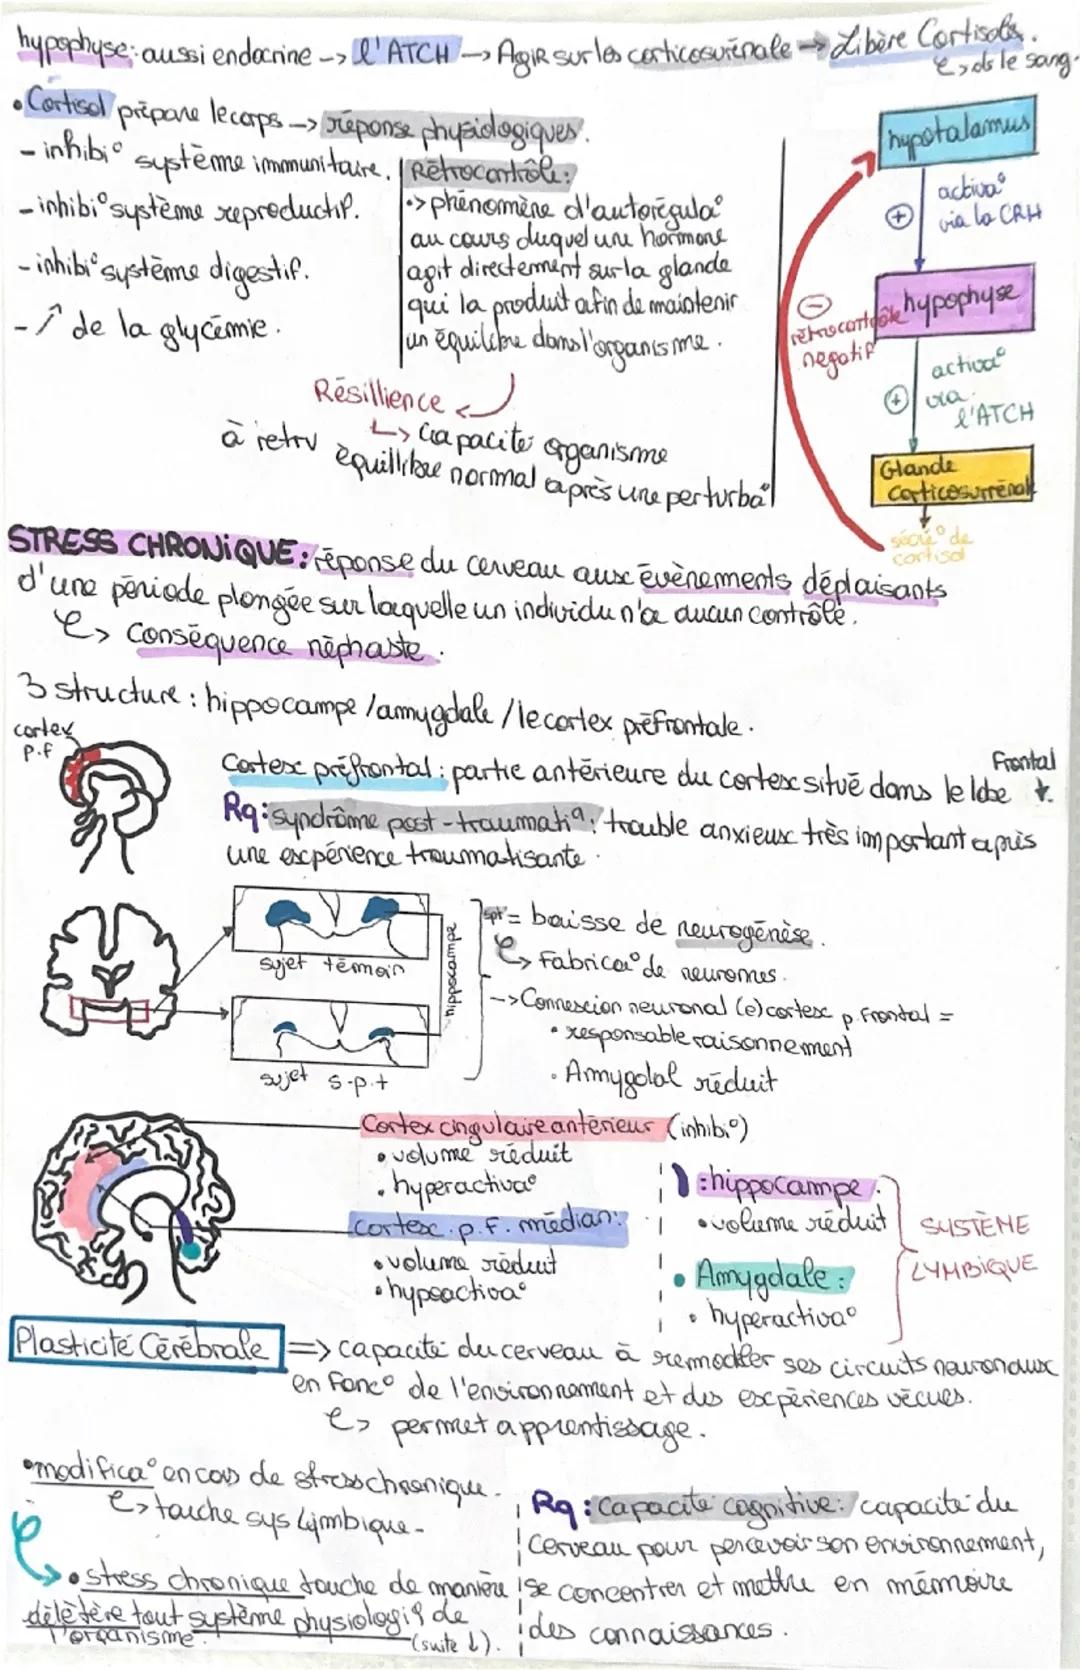 hypophyse: aussi endocrine -> l'ATCH -> Agir sur les corticosurénale -> Libère Cortisols.
↳ ds le sang.
• Cortisol prépare le corps -> réponse physiologiques.
- inhibi° système immunitaire.
- inhibi° système reproductif.
- inhibi° système digestif.
- ↗ de la glycémie.
Rétrocontrôle:
-> phénomène d'autorégula°
au cours duquel une hormone
agit directement sur la glande
qui la produit afin de maintenir
un équilibre dans l'organisme.
Résillience
↳ Capacité organisme
à retrv équilibre normal après une perturba°
hypotalamus
+ activa°
via la CRH
hypophyse
- rétrocontrôle
négatif
+ activa°
via
l'ATCH
Glande
corticosurrénale
sécré° de
cortisol
STRESS CHRONiQUE: réponse du cerveau aux évènements déplaisants
d'une période plongée sur laquelle un individu n'a aucun contrôle.
↳ Conséquence néphaste.
3 structure : hippocampe / amygdale / le cortex préfrontale.
cortex
p.f
Cortex préfrontal : partie antérieure du cortex situé dans le lobe Frontal
Rq: syndrôme post-traumati q: trouble anxieux très important après
une expérience traumatisante.
sujet témoin
hippocampe
sujet s.p.t
spt = baisse de neurogénèse.
↳ Fabrica° de neurones.
-> Connexion neuronal (e) cortex p. Frontal =
• responsable raisonnement
• Amygdal réduit
Cortex cingulaire antérieur (inhibi°)
• volume réduit
• hyperactiva°
cortex. p.f. médian:
• volume réduit
• hypoactiva°
: hippocampe:
• volume réduit
• Amygdale:
• hyperactiva°
SYSTÈME
LYMBIQUE
Plasticité Cérébrale => capacité du cerveau à remodeler ses circuits neuronaux
en fonc° de l'environnement et des expériences vécues.
↳ permet apprentissage.
• modifica° en cas de stress chronique.
↳ touche sys Lymbique-
↳ • stress chronique touche de manière
délètère tout système physiologiq de
l'organisme. (suite ↓).
Rq: Capacité cognitive: capacité du
cerveau pour percevoir son environnement,
se concentrer et mettre en mémoire
des connaissances.